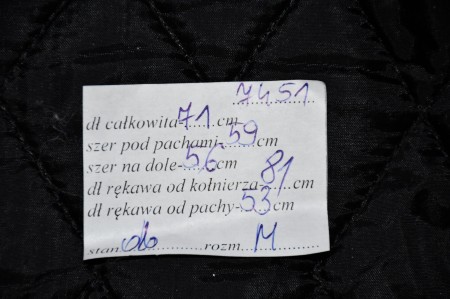 7451
dł całkowita-71cm
szer pod pachami-59cm
szer na dole-56cm
dł rękawa od kołnierza-81cm
dł rękawa od pachy-53cm
stan db rozm M